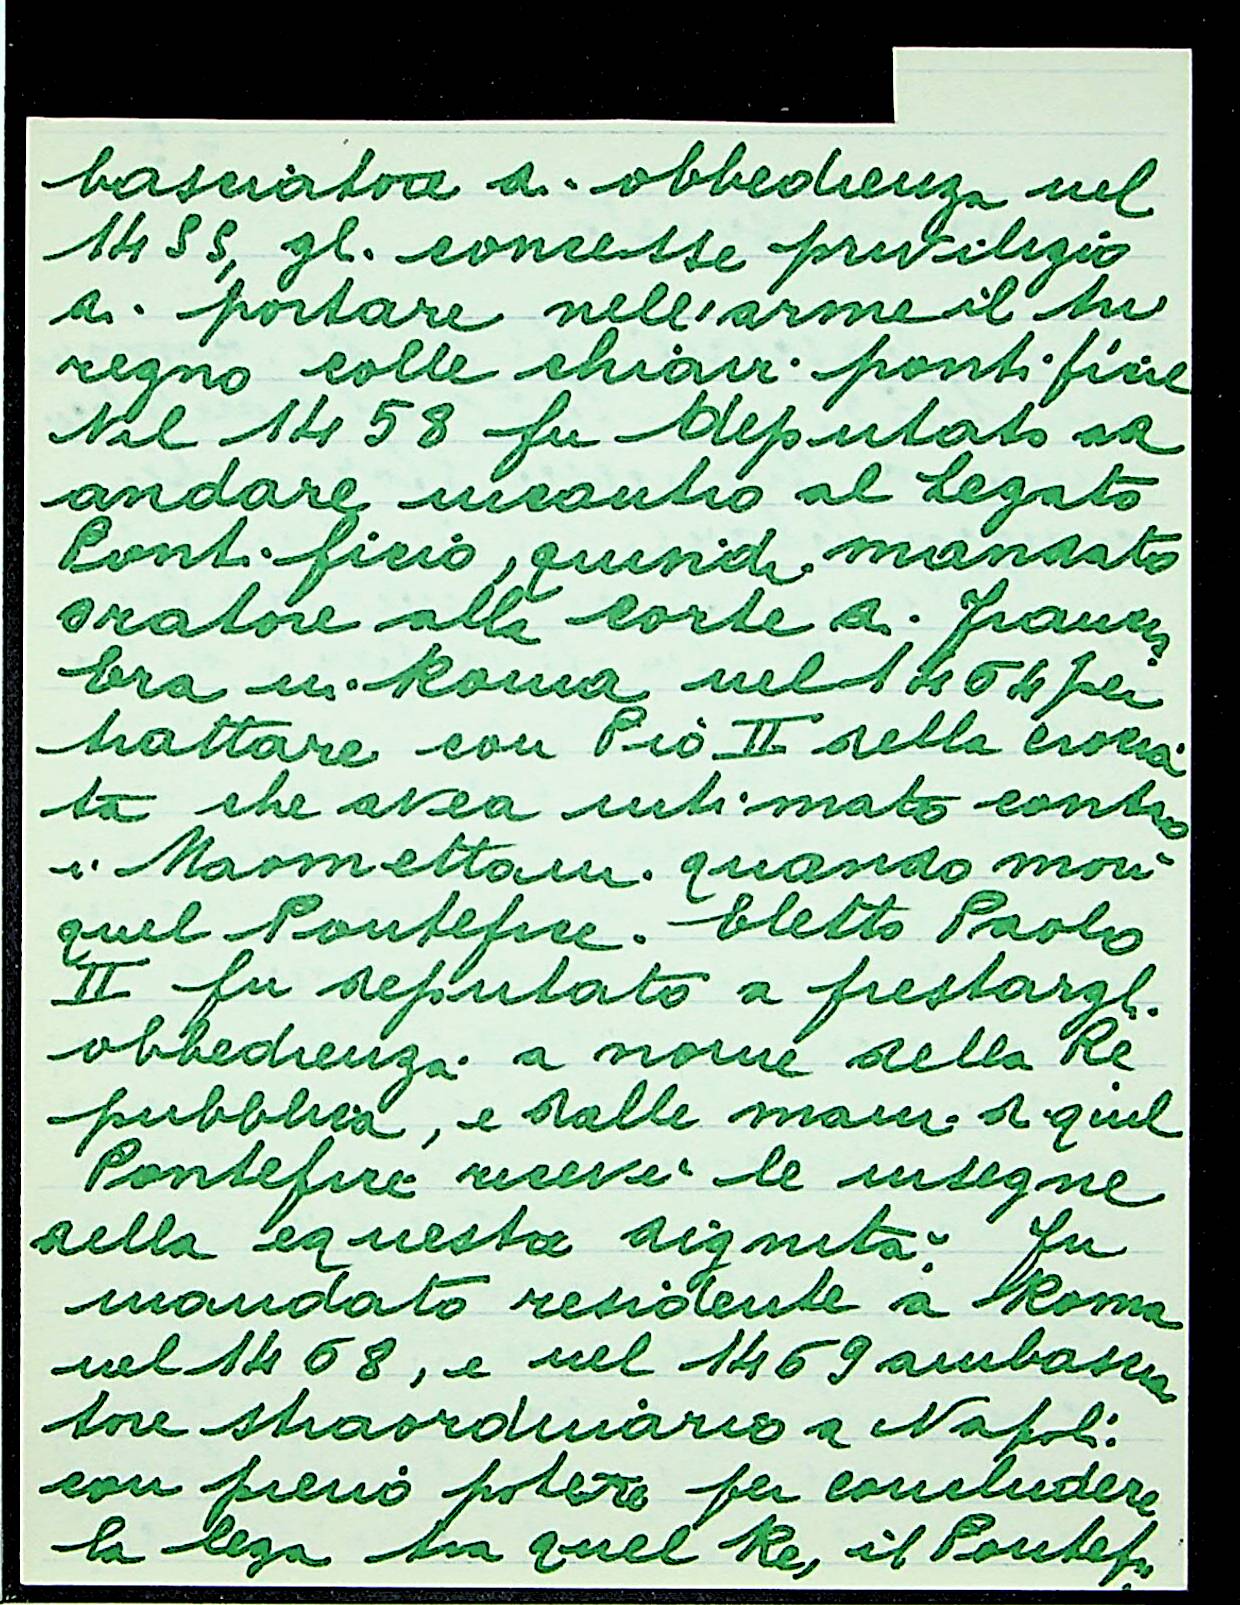 basciatore di obbedienza nel
1455, gli concesse privilegio
di portare nell'arme il tri
regno colle chiavi pontificie
Nel 1458 fu deputato ad
andare incontro al Legato
Pontificio, quindi mandato
oratore alla corte di
era in Roma nel 1464 per
trattare con Pio II della crocia
ta che avea intimato contro
i Maomettani quando morì
quel Pontefice. Eletto Paolo
II fu deputato a prestargli
obbedienza a nome della Re
pubblica, e dalle mani di quel
Pontefice ricevè le insegne
della equestre dignità. Fu
mandato residente a Roma
nel 1468, e nel 1469 ambascia
tore straordinario a Napoli
con pieno potere per concludere
la lega tra quel Re, il Pontefi